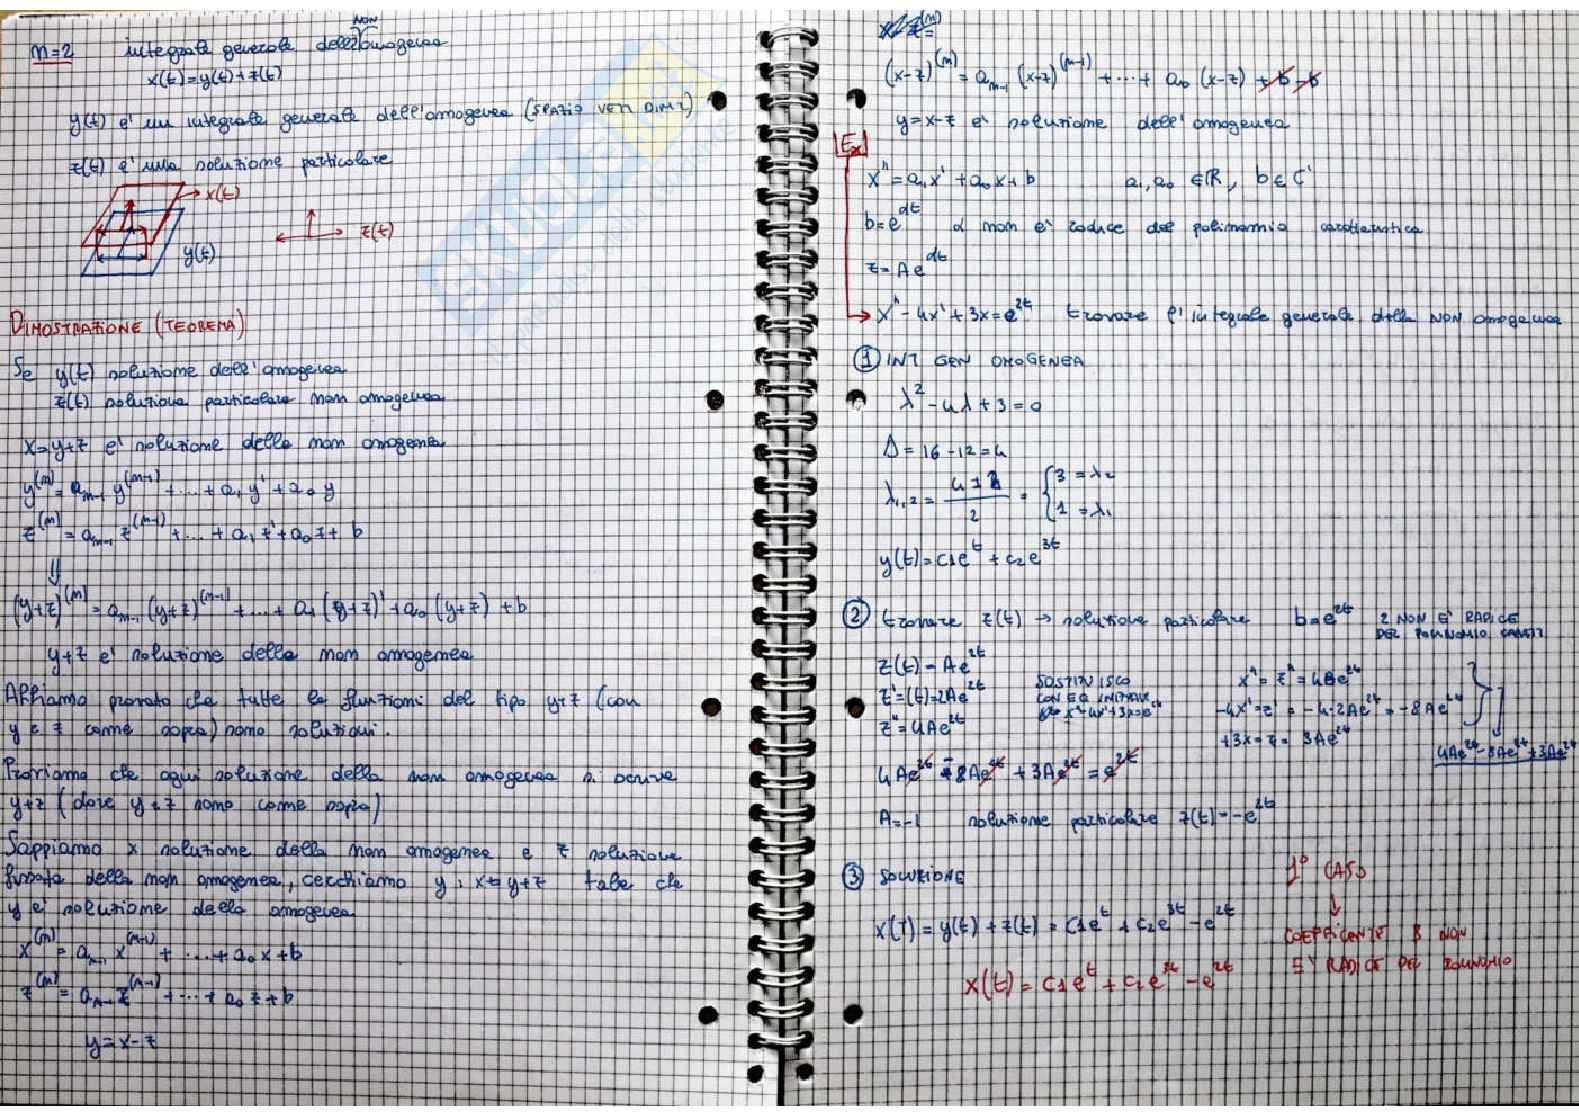 n=2 integrale generale dell' NON omogenea
x(t)=y(t)+z(t)
y(t) e' un integrale generale dell'omogenea (SPAZIO VETT DIM 2)
z(t) e' una soluzione particolare
x(t)
z(t)
y(t)
DIMOSTRAZIONE (TEOREMA)
Se y(t) soluzione dell'omogenea
z(t) soluzione particolare non omogenea
x=y+z e' soluzione della non omogenea
y^(n) = a_{n-1} y^(n-1) + ... + a_1 y' + a_0 y
z^(n) = a_{n-1} z^(n-1) + ... + a_1 z' + a_0 z + b
⇓
(y+z)^(n) = a_{n-1} (y+z)^(n-1) + ... + a_1 (y+z)' + a_0 (y+z) + b
y+z e' soluzione della non omogenea
Abbiamo provato che tutte le funzioni del tipo y+z (con
y e z come sopra) sono soluzioni.
Proviamo che ogni soluzione della non omogenea si scrive
y+z (dove y e z sono come sopra)
Sappiamo x soluzione della non omogenea e z soluzione
fissata della non omogenea, cerchiamo y : x=y+z tale che
y e' soluzione della omogenea
x^(n) = a_{n-1} x^(n-1) + ... + a_0 x + b
z^(n) = a_{n-1} z^(n-1) + ... + a_0 z + b
y=x-z
(x-z)^(n) = a_{n-1} (x-z)^(n-1) + ... + a_0 (x-z) + b - b
y=x-z e' soluzione dell'omogenea
Ex
x'' = a_1 x' + a_0 x + b a_1, a_0 ∈ R, b ∈ C'
b=e^{αt} α non e' radice del polinomio caratteristico
z = A e^{αt}
x'' - 4x' + 3x = e^{2t} trovare l'integrale generale della NON omogenea
① INT GEN OMOGENEA
λ² - 4λ + 3 = 0
Δ = 16 - 12 = 4
λ_{1,2} = (4 ± 2)/2 = { 3 = λ_2
1 = λ_1
y(t) = c1 e^t + c2 e^{3t}
② trovare z(t) → soluzione particolare b = e^{2t} 2 NON E' RADICE
DEL POLINOMIO CARATT
z(t) = A e^{2t}
z' = (t) = 2A e^{2t}
z'' = 4A e^{2t}
SOSTITUISCO
CON EQ INIZIALE
x'' - 4x' + 3x = e^{2t}
x'' = z'' = 4A e^{2t}
-4x' = z' = -4·2A e^{2t} = -8A e^{2t}
+3x = z = 3A e^{2t}
4Ae^{2t} - 8Ae^{2t} + 3Ae^{2t}
4A e^{2t} - 8A e^{2t} + 3A e^{2t} = e^{2t}
A = -1 soluzione particolare z(t) = -e^{2t}
③ SOLUZIONE
x(t) = y(t) + z(t) = c1 e^t + c2 e^{3t} - e^{2t}
x(t) = c1 e^t + c2 e^{3t} - e^{2t}
1° CASO
↓
COEFFICENTE B NON
E' RADICE DEL POLINOMIO